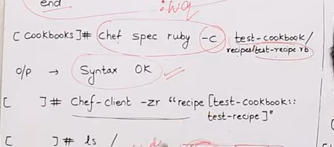 end
:wq
[cookbooks]# chef spec ruby -c test-cookbook/
recipes/test-recipe rb
o/p → Syntax OK
[ ]# chef-client -zr "recipe [test-cookbook::
test-recipe]"
[ ]# ls /